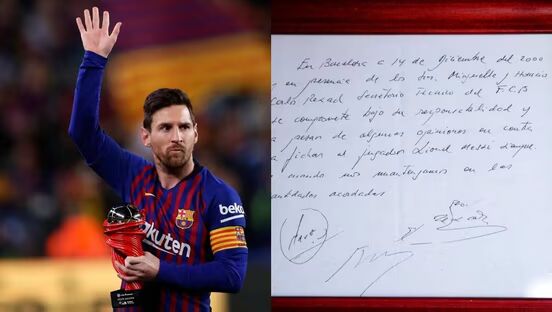 beko
Rakuten
En Barcelona a 14 de diciembre del 2000
en presencia de los Sres. Minguella y Horacio
Carlo Rexach Secretario Técnico del F.C.B
se compromete bajo su responsabilidad y
a pesar de algunas opiniones en contra
a fichar al jugador Lionel
nos mantengamos en las
cantidades acordadas